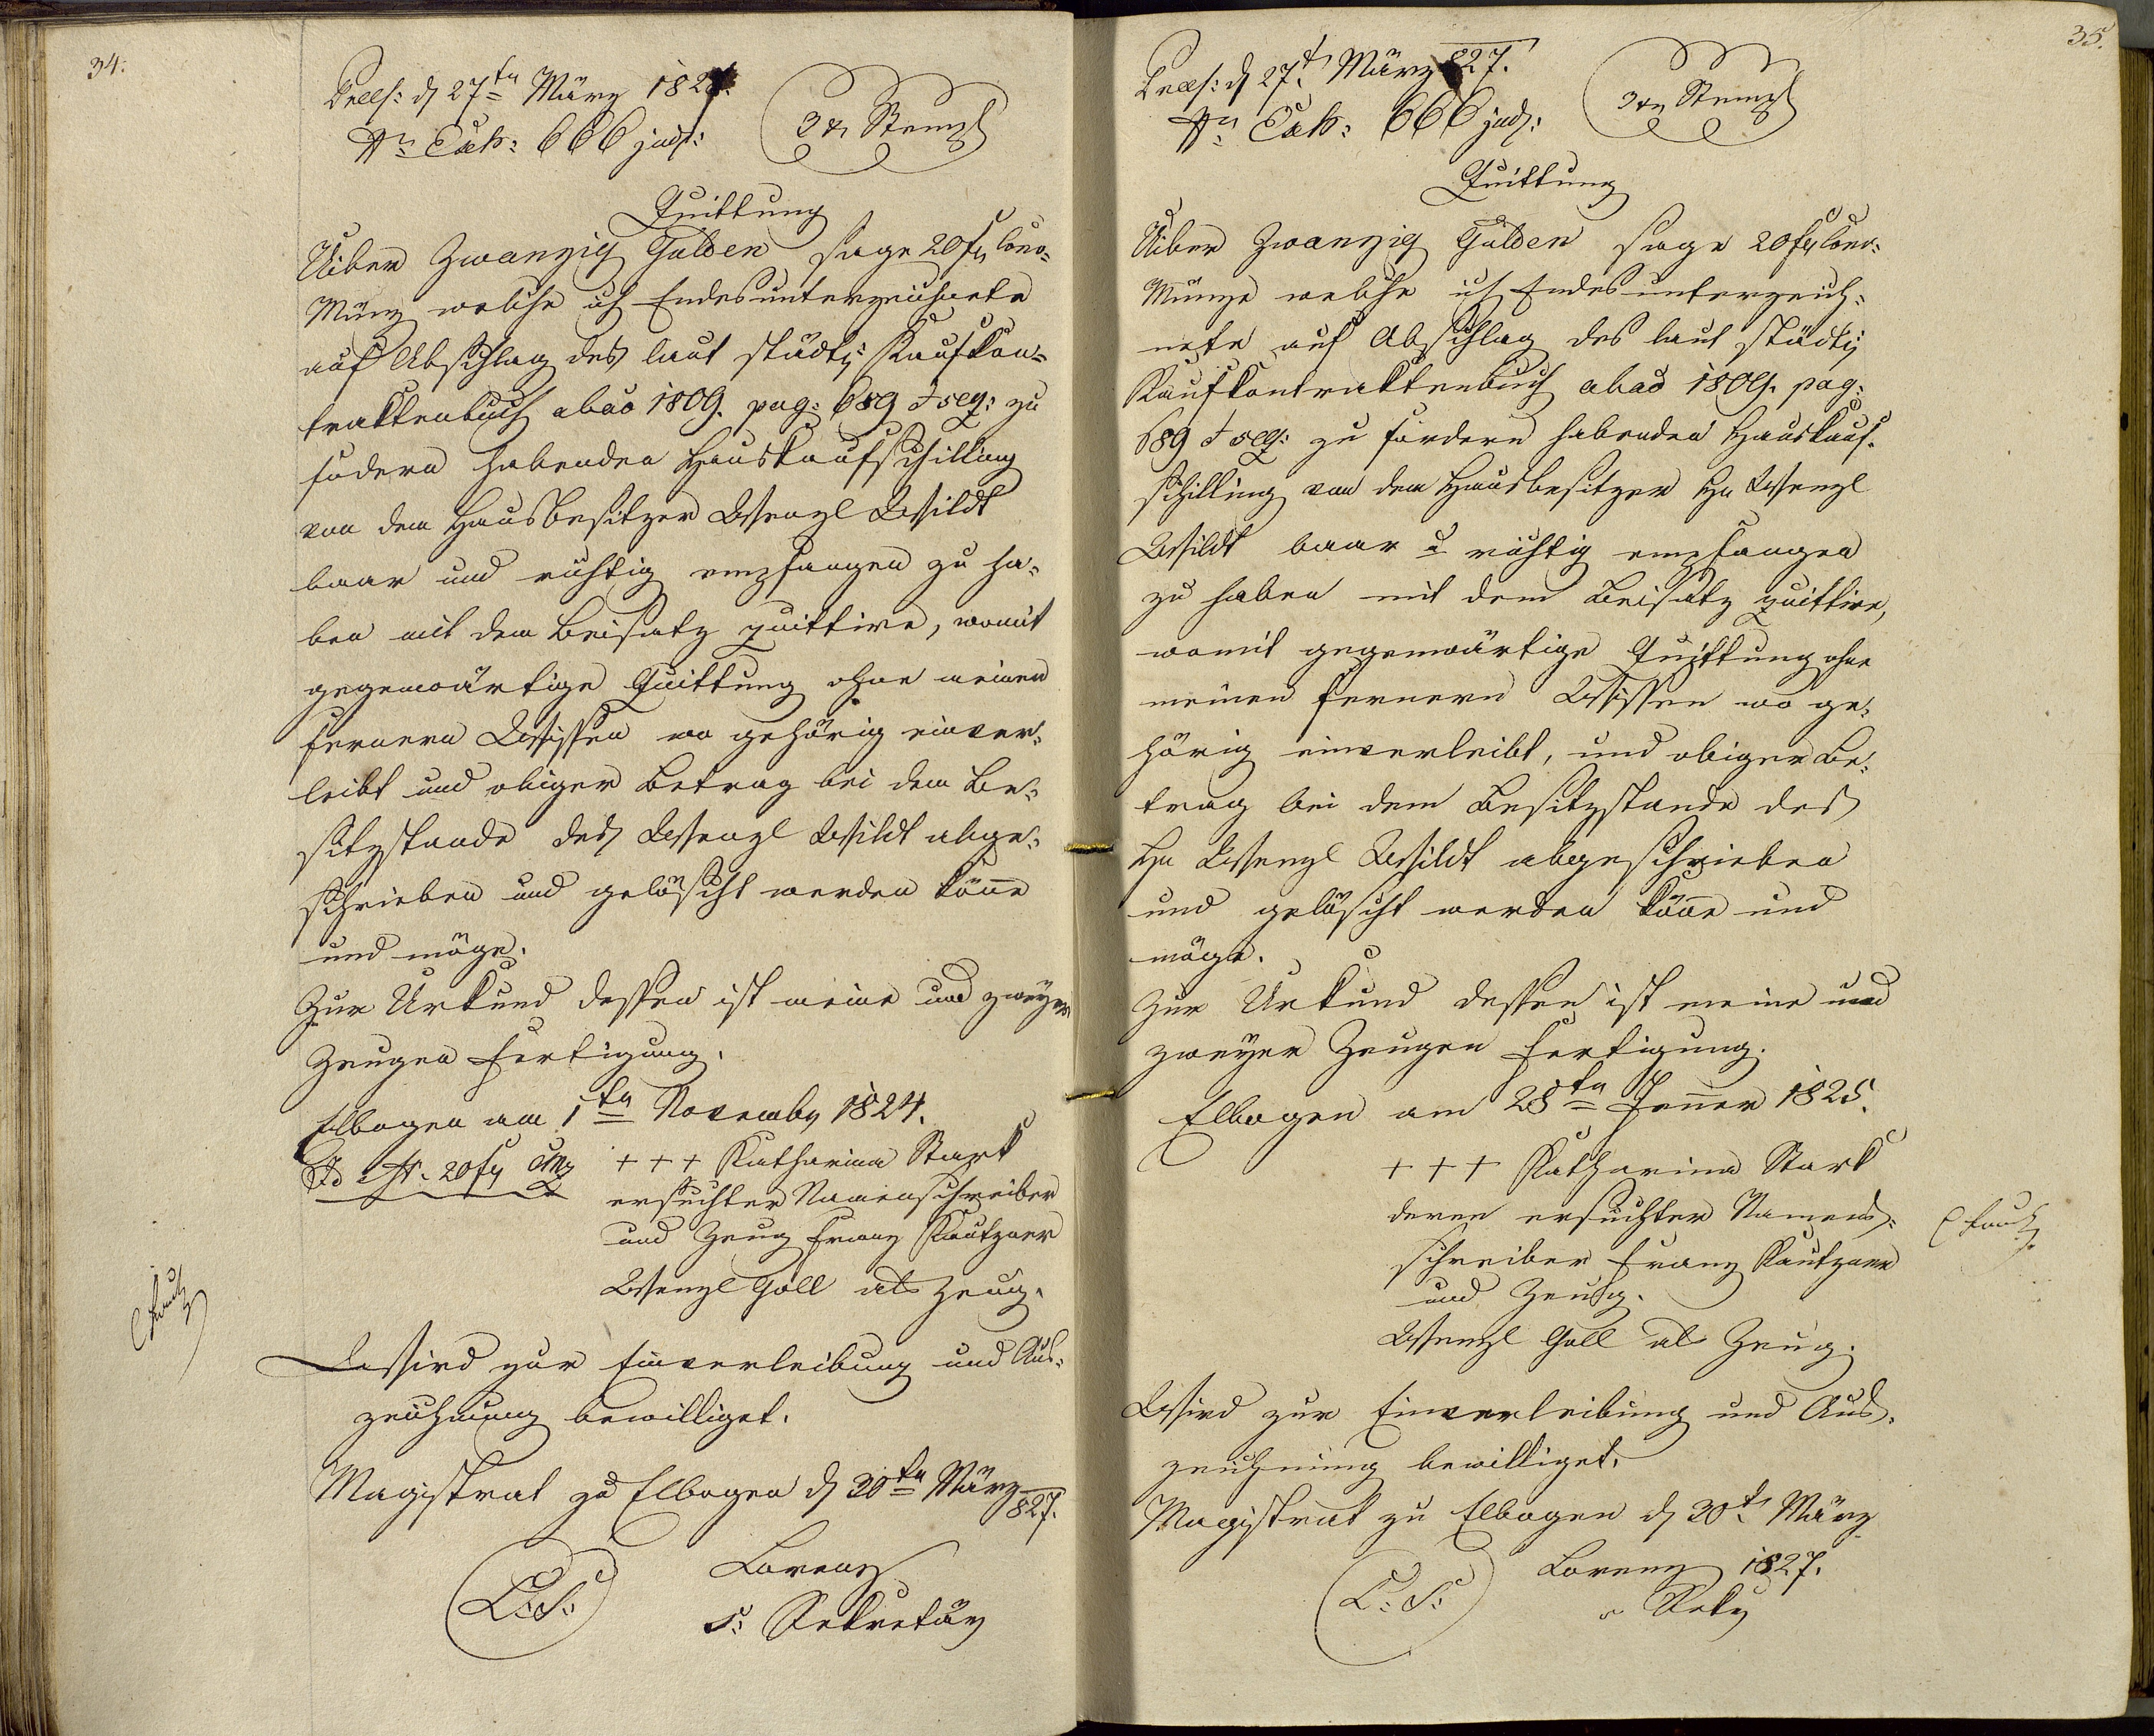 34.
Präs: d 27ten März 1827.
Nr. Exh: 666 jud:
3 xr Stempl
Quittung
Uiber Zwanzig Gulden sage 20 f Conv-
Münz welche ich Endesunterzeichnete
auf Abschlag des laut städt: Kaufkon-
traktenbuch ab ao 1809. pag: 689 & seq: zu
fodern habenden Hauskaufschilling
von dem Hausbesitzer Wenzl Wildt
baar und richtig empfangen zu ha-
ben mit dem Beisatz quittire, womit
gegenwärtige Quittung ohne meinen
fernern Wissen wo gehörig einver-
leibt und obiger Betrag bei dem Be-
sitzstande des Wenzl Wildt abge-
schrieben und gelöscht werden könne
und möge.
Zur Urkund dessen ist meine und zweyer
Zeugen Fertigung.
Elbogen am 1ten Novemb 1824.
20 f CMz +++ Katharina Stark
ersuchter Namenschreiber
und Zeug Franz Kautzner
Wenzl Goll als Zeug.
Wird zur Einverleibung und Aus-
zeichnung bewilliget.
Magistrat zu Elbogen d 30ten März
827.
L: S: Lorenz
s: Sekretär
35.
Präs: d 27t. März 827.
Nr. Exh: 666 jud:
3 xr Stempl
Quittung
Uiber Zwanzig Gulden sage 20 f Conv-
Münze welche ich Endesunterzeich-
nete auf Abschlag des laut städt:
Kaufkontraktenbuch ab ao 1809. pag:
689 & seq: zu fordern habenden Hauskauf-
schilling von dem Hausbesitzer Hn Wenzl
Wildt baar u richtig empfangen
zu haben mit dem Beisatz quittire,
womit gegenwärtige Quittung ohne
meinen fernern Wissen wo ge-
hörig einverleibt, und obiger Be-
trag bei dem Besitzstande des
Hn Wenzl Wildt abgeschrieben
und gelöscht werden könne und
möge.
Zur Urkund dessen ist meine und
zweyer Zeugen Fertigung.
Elbogen am 28ten Jenner 1825.
+++ Katharina Stark
deren ersuchter Namens-
schreiber Franz Kautzner
und Zeug.
Wenzl Goll als Zeug.
Wird zur Einverleibung und Aus-
zeichnung bewilliget.
Magistrat zu Elbogen d 30t. März
1827.
L: S: Lorenz
s Sekr